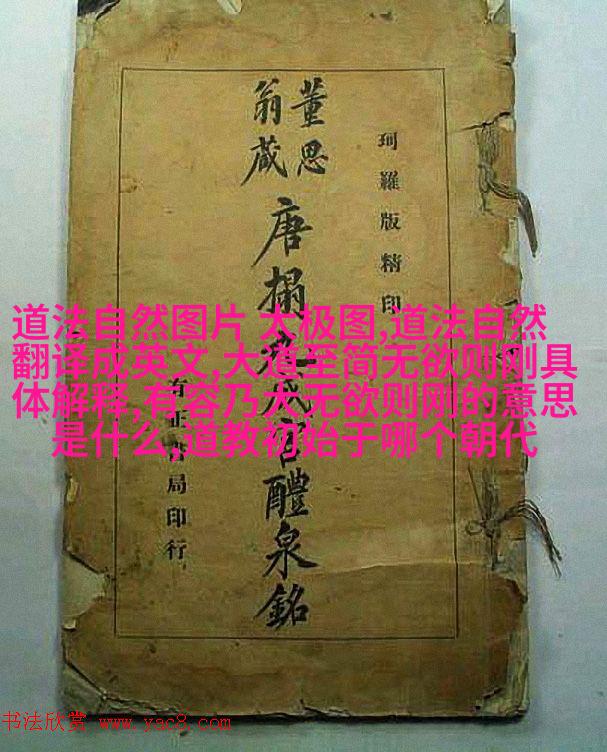 珂羅版精印
董思
翁藏
唐搨九成宮醴泉銘
有正書局印行
道法自然图片 太极图,道法自然
翻译成英文,大道至简无欲则刚具
体解释,有容乃大无欲则刚的意思
是什么,道教初始于哪个朝代
书法欣赏 www.yac8.com